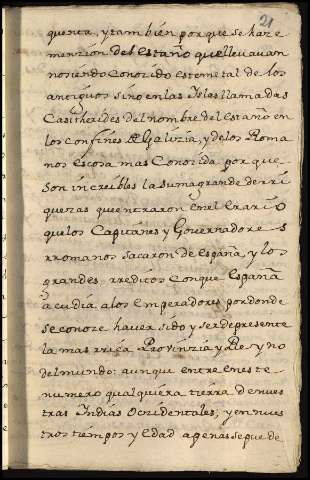 21
quenta, ytambien porque se haze
menzion del estaño quellevavan
nosiendo Conozido estemetal de los
antiguos sino enlas Islas llamadas
Casitherides del nombre del estaño en
los confines de Galizia, ydelos Roma
nos escosa mas Conozida porque
son increibles la suma grande derri
quezas que entraron en el Erario
quelos Capitanes y Governadores
rromanos sacaron de españa, y los
grandes rreditos conque españa
acudia alos emperadores pordonde
seconoze haver sido y ser depresente
la mas rrica Provinzia y Reyno
del mundo: aunque entre en este
numero qualquiera tierra denues
tras Indias Ocidentales; yen nues
tros tiempos y edad apenas se quede